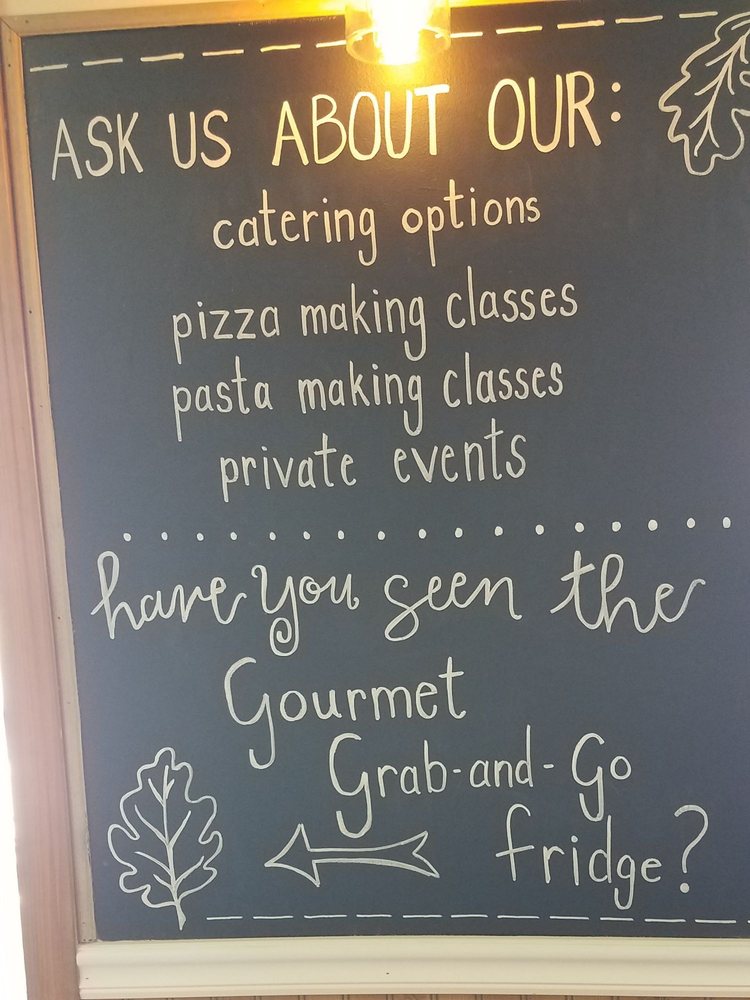 ASK US ABOUT OUR:
catering options
pizza making classes
pasta making classes
private events
have you seen the
Gourmet
Grab-and-Go
fridge?